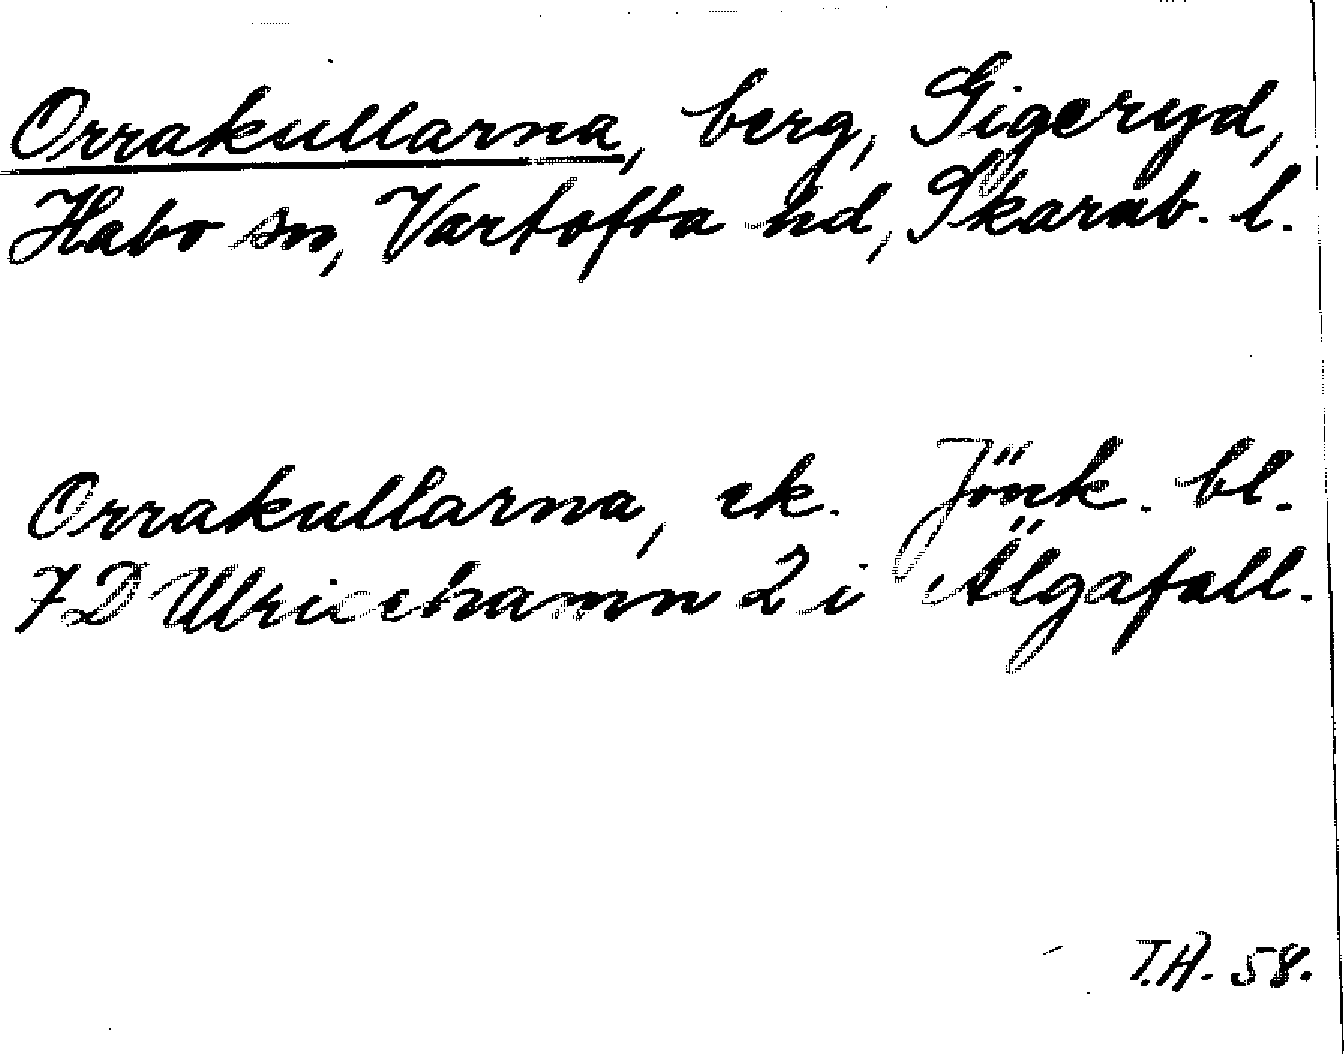 Orrakullarna, berg, Gigeryd,
Habo sn, Vartofta hd, Skarab. l.
Orrakullarna, ek. Jönk. bl.
7D Ulricehamn 2 i Älgafall.
T.H. 58.